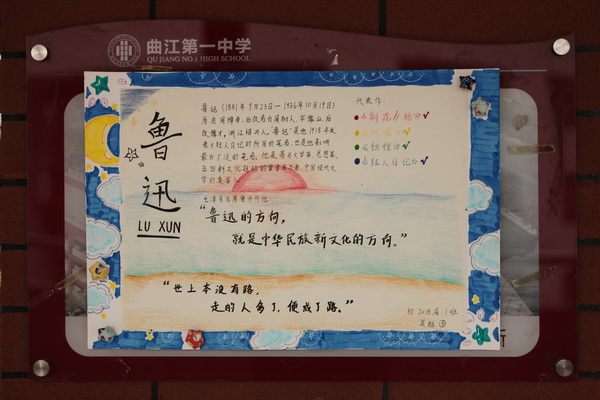 曲江第一中学
QU JIANG NO.1 HIGH SCHOOL
鲁迅
LU XUN
鲁迅(1881年9月25日—1936年10月19日)
原名周樟寿,后改名为周树人,字豫山,后
改豫才,浙江绍兴人。"鲁迅"是他1918年发
表《狂人日记》时所用的笔名,也是他影响
最为广泛的笔名。他是著名文学家、思想家、
五四新文化运动的重要参与者,中国现代文
学的奠基人
毛泽东主席曾评价他
"鲁迅的方向,
就是中华民族新文化的方向。"
"世上本没有路,
走的人多了,便成了路。"
代表作
《朝花夕拾》
《彷徨》
《狂人日记》
2018届1班